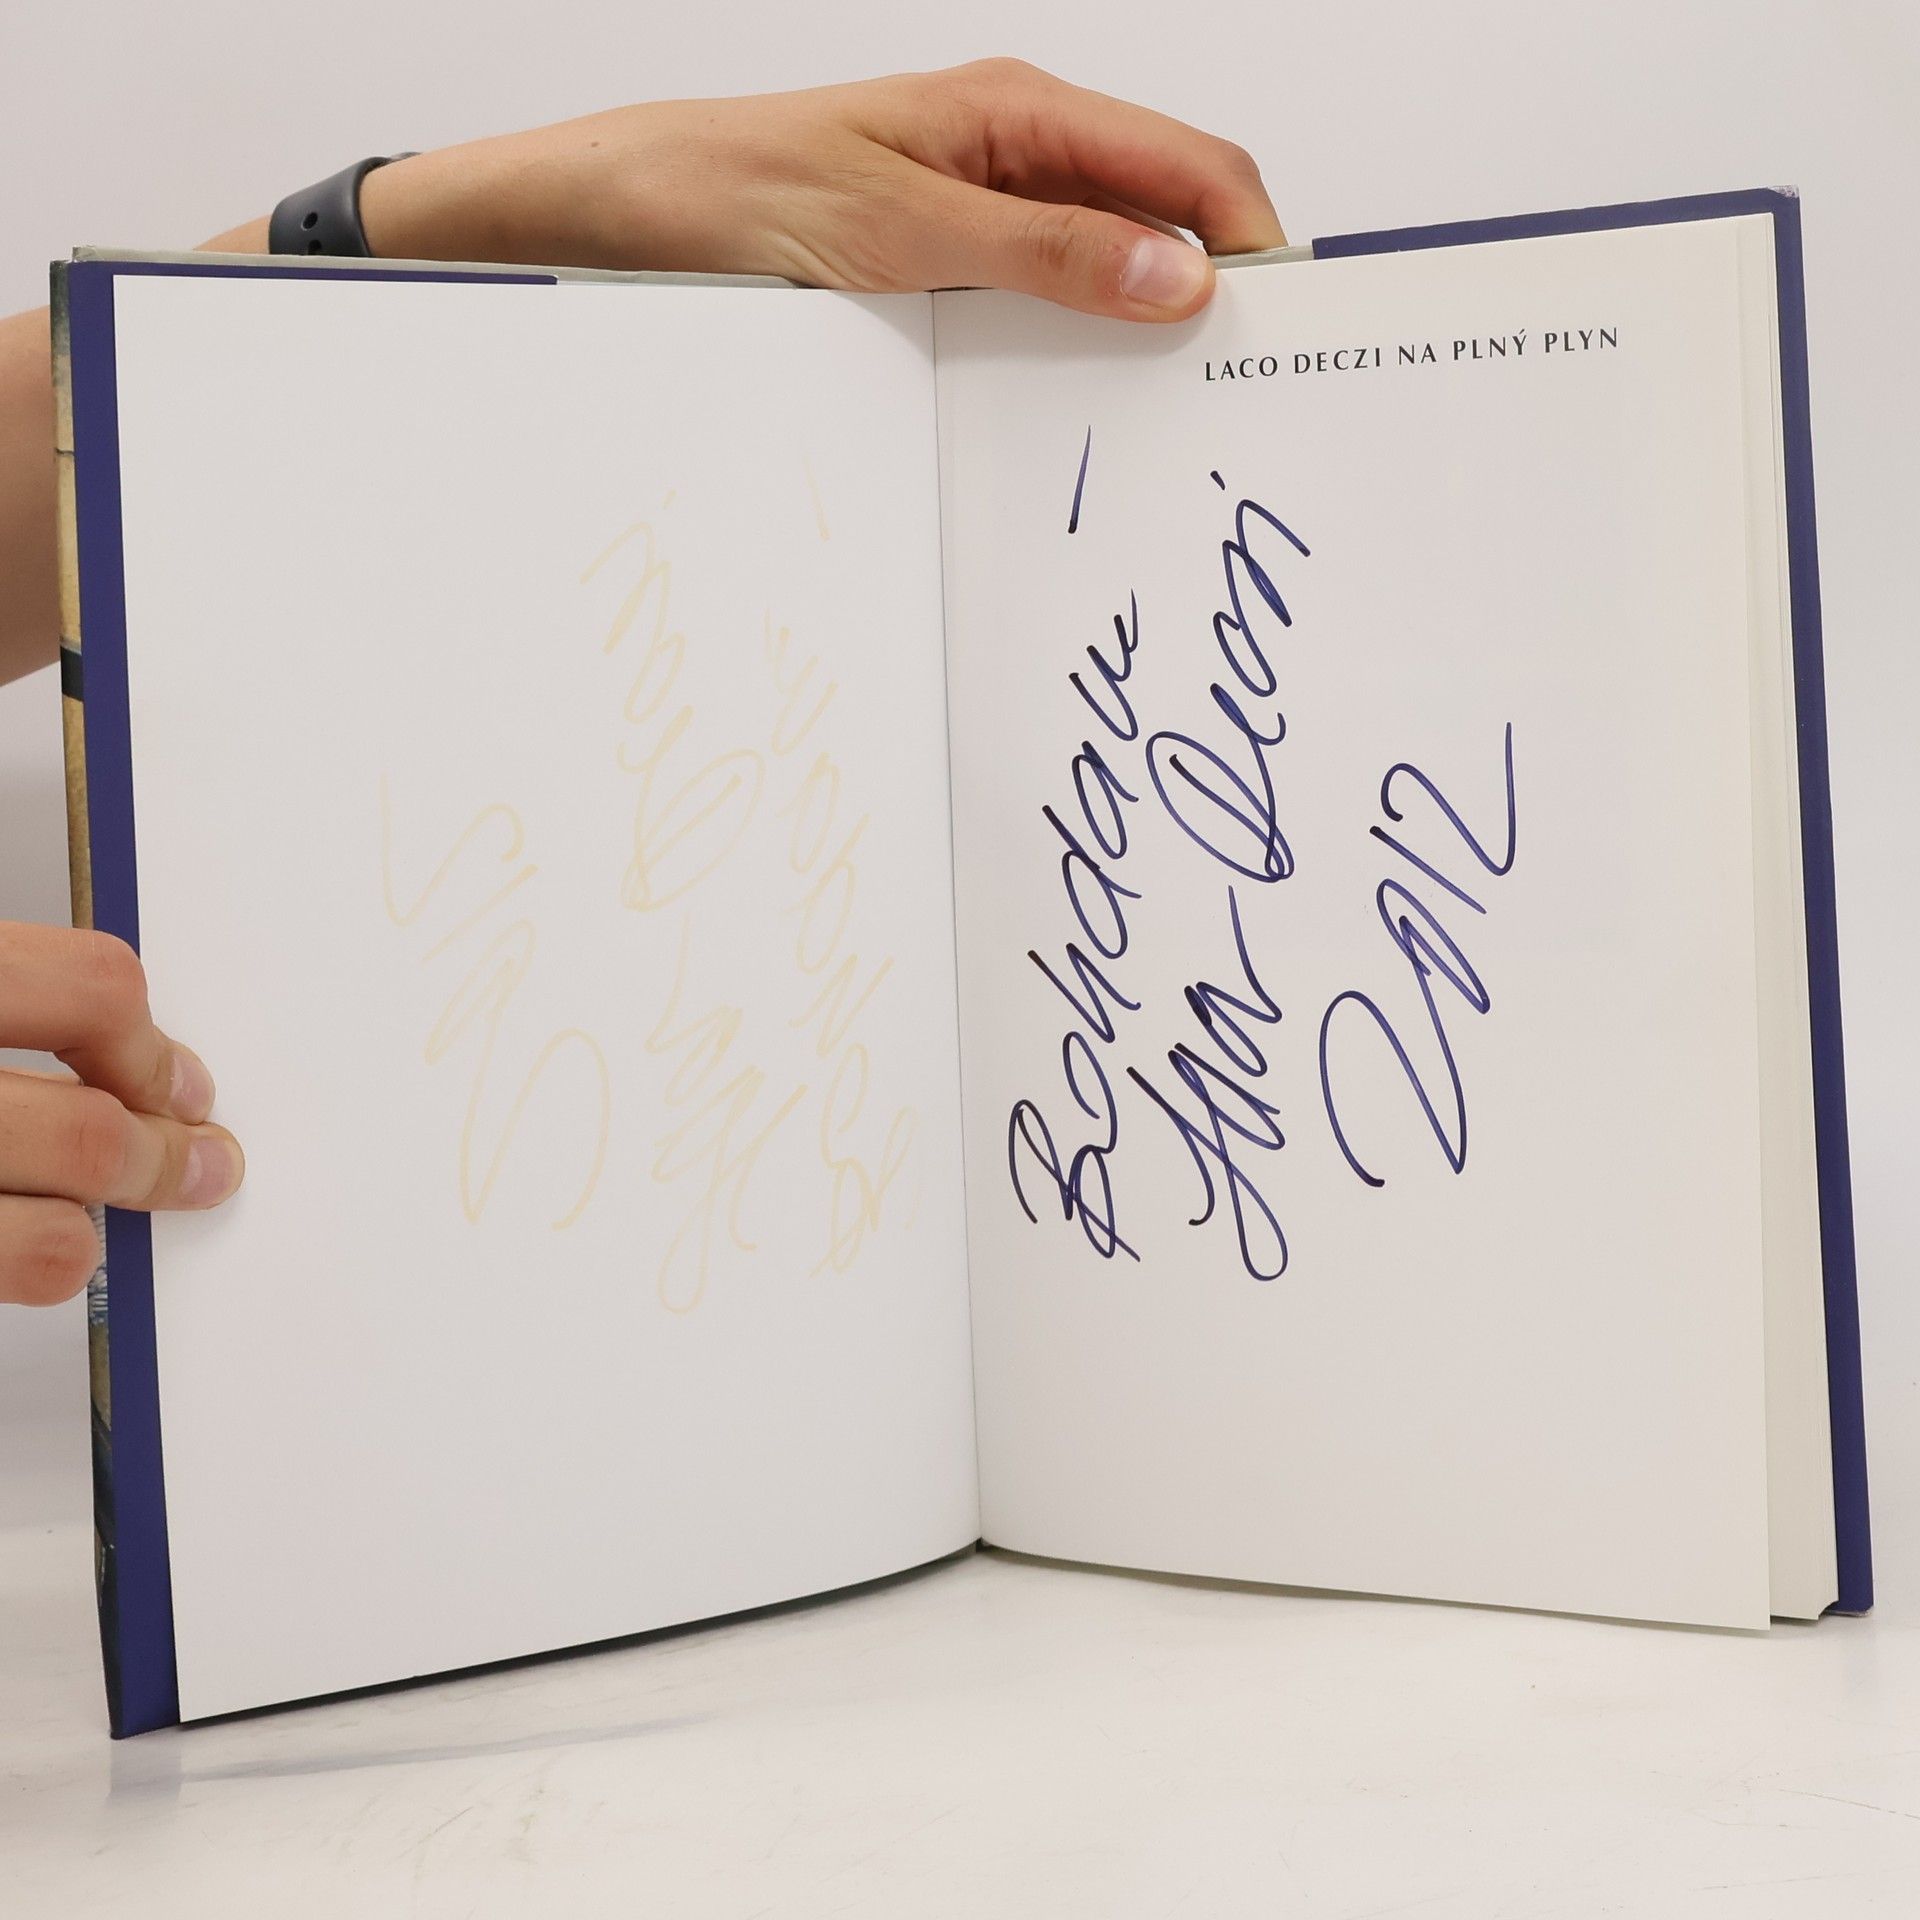 LACO DECZI NA PLNÝ PLYN
Bohdane
Deczi
2012